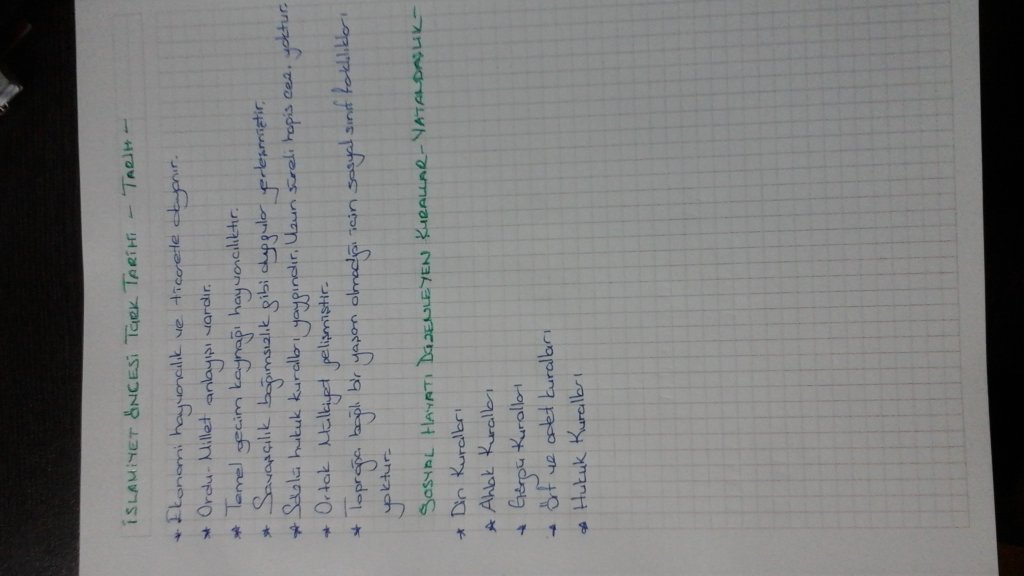 İSLAMİYET ÖNCESİ TÜRK TARİHİ - TARİH -
* Ekonomi hayvancılık ve ticarete dayanır.
* Ordu-Millet anlayışı vardır.
* Temel geçim kaynağı hayvancılıktır.
* Savaşçılık bağımsızlık gibi duygular yerleşmiştir.
* Sözlü hukuk kuralları yaygındır. Uzun süreli hapis ceza yoktur.
* Ortak Mülkiyet gelişmiştir.
* Toprağa bağlı bir yaşam olmadığı için sosyal sınıf farklılıkları
yoktur.
SOSYAL HAYATI DÜZENLEYEN KURALLAR - VATANDAŞLIK -
* Din Kuralları
* Ahlak Kuralları
* Görgü Kuralları
* Örf ve adet kuralları
* Hukuk Kuralları